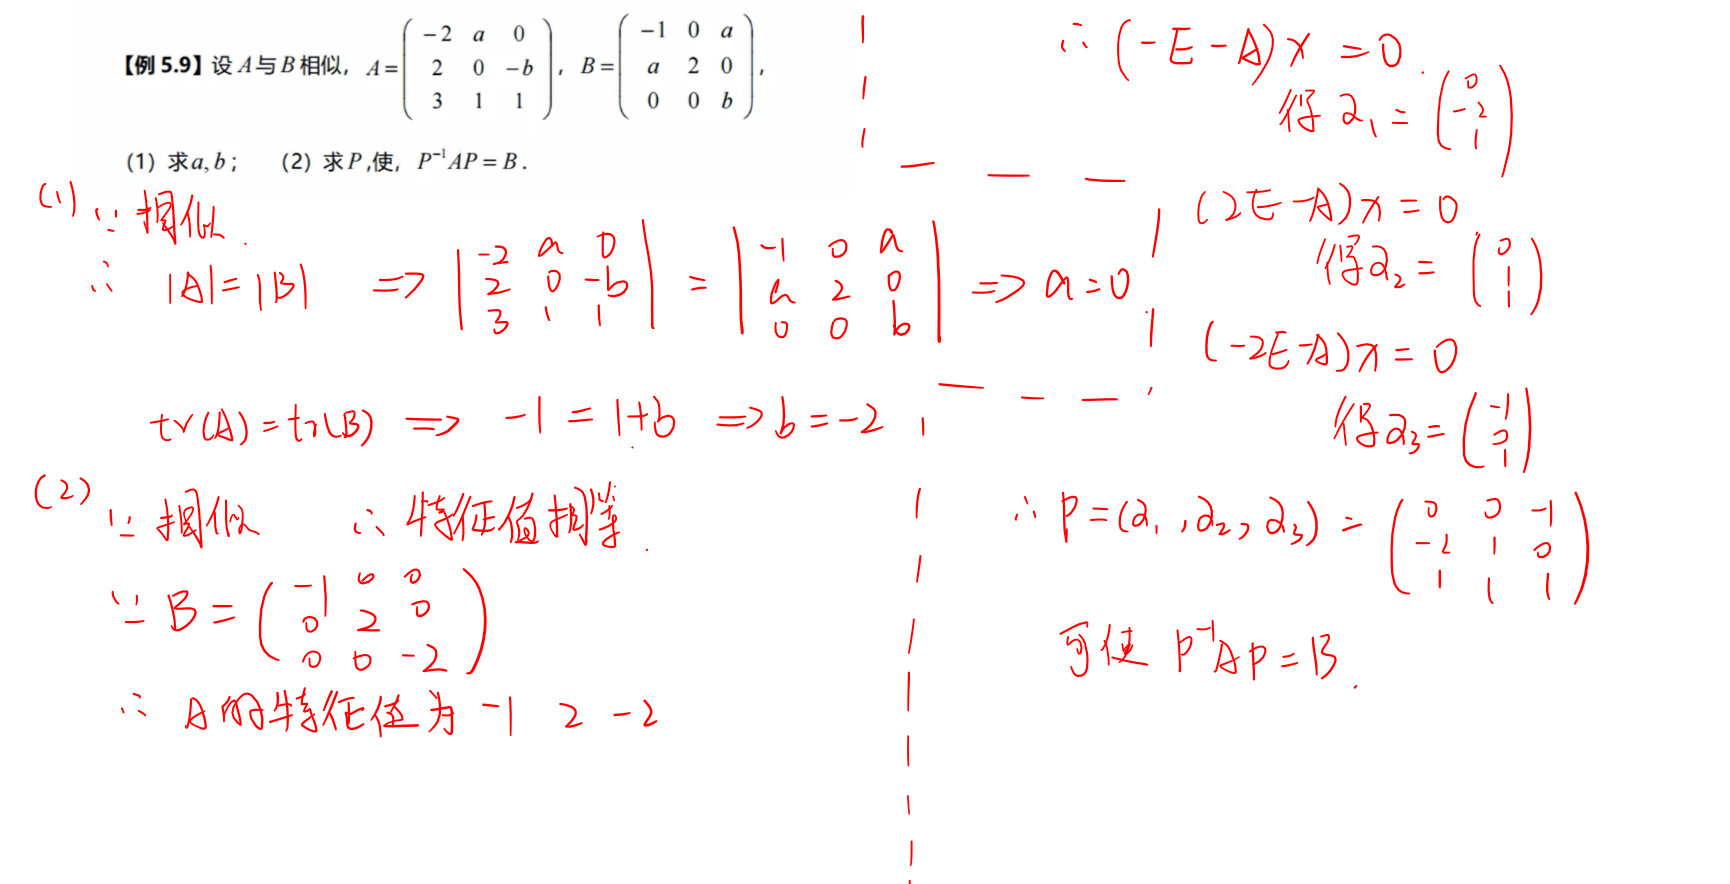 【例 5.9】设 A 与 B 相似, A = ( -2 a 0 ; 2 0 -b ; 3 1 1 ), B = ( -1 0 a ; a 2 0 ; 0 0 b ),
(1) 求 a, b; (2) 求 P, 使, P⁻¹AP = B.
(1) ∵ 相似.
∴ |A| = |B| => | -2 a 0 ; 2 0 -b ; 3 1 1 | = | -1 0 a ; a 2 0 ; 0 0 b | => a = 0
tr(A) = tr(B) => -1 = 1+b => b = -2
(2) ∵ 相似 ∴ 特征值相等.
∵ B = ( -1 0 0 ; 0 2 0 ; 0 0 -2 )
∴ A的特征值为 -1 2 -2
∴ (-E-A)x = 0.
得 α₁ = ( 0 ; -2 ; 1 )
(2E-A)x = 0
得 α₂ = ( 0 ; 1 ; 1 )
(-2E-A)x = 0
得 α₃ = ( -1 ; 0 ; 1 )
∴ P = (α₁, α₂, α₃) = ( 0 0 -1 ; -2 1 0 ; 1 1 1 )
可使 P⁻¹AP = B.